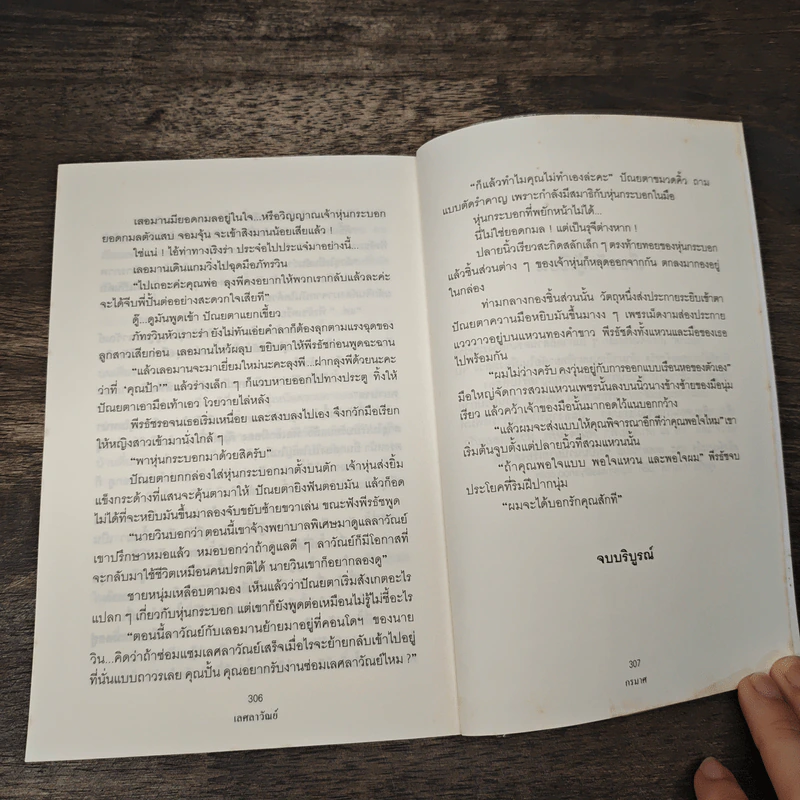 เลอมานมียอดกมลอยู่ในใจ...หรือวิญญาณเจ้าหุ่นกระบอก
ยอดกมลตัวแสบ จอมจุ้น จะเข้าสิงมานน้อยเสียแล้ว !
ใช่แน่ ! ไอ้ท่าทางเริงร่า ประจ๋อไปประแจ๋มาอย่างนี้...
เลอมานเดินแกมวิ่งไปฉุดมือภัทรวิน
“ไปเถอะค่ะคุณพ่อ ลุงพีคงอยากให้พวกเรากลับแล้วล่ะค่ะ
จะได้จีบพี่ปั้นต่ออย่างสะดวกใจเสียที”
ดู๊...ดูมันพูดเข้า ปัณยตาแยกเขี้ยว
ภัทรวินหัวเราะร่า ยังไม่ทันเอ่ยคำลาก็ต้องลุกตามแรงฉุดของ
ลูกสาวเสียก่อน เลอมานไหว้ผลุบ ขยิบตาให้พีรธัชก่อนพูดฉะฉาน
“แล้วเลอมานจะมาเยี่ยมใหม่นะคะลุงพี...ฝากลุงพีด้วยนะคะ
ว่าที่ ‘คุณป้า’” แล้วร่างเล็ก ๆ ก็แวบหายออกไปทางประตู ทิ้งให้
ปัณยตาเอามือเท้าเอว โวยวายไล่หลัง
พีรธัชรอจนเธอเริ่มเหนื่อย และสงบลงไปเอง จึงกวักมือเรียก
ให้หญิงสาวเข้ามานั่งใกล้ ๆ
“พาหุ่นกระบอกมาด้วยสิครับ”
ปัณยตายกกล่องใส่หุ่นกระบอกมาตั้งบนตัก เจ้าหุ่นส่งยิ้ม
แข็งกระด้างที่แสนจะคุ้นตามาให้ ปัณยตายิงฟันตอบมัน แล้วก็อด
ไม่ได้ที่จะหยิบมันขึ้นมาลองจับขยับซ้ายขวาเล่น ขณะฟังพีรธัชพูด
“นายวินบอกว่า ตอนนี้เขาจ้างพยาบาลพิเศษมาดูแลลาวัณย์
เขาปรึกษาหมอแล้ว หมอบอกว่าถ้าดูแลดี ๆ ลาวัณย์ก็มีโอกาสที่
จะกลับมาใช้ชีวิตเหมือนคนปรกติได้ นายวินเขาก็อยากลองดู”
ชายหนุ่มเหลือบตามอง เห็นแล้วว่าปัณยตาเริ่มสังเกตอะไร
แปลก ๆ เกี่ยวกับหุ่นกระบอก แต่เขาก็ยังพูดต่อเหมือนไม่รู้ไม่ชี้อะไร
“ตอนนี้ลาวัณย์กับเลอมานย้ายมาอยู่ที่คอนโดฯ ของนาย
วิน...คิดว่าถ้าซ่อมแซมเลศลาวัณย์เสร็จเมื่อไรจะย้ายกลับเข้าไปอยู่
ที่นั่นแบบถาวรเลย คุณปั้น คุณอยากรับงานซ่อมเลศลาวัณย์ไหม ?”
306
เลศลาวัณย์
“ก็แล้วทำไมคุณไม่ทำเองล่ะคะ” ปัณยตาขมวดคิ้ว ถาม
แบบตัดรำคาญ เพราะกำลังมีสมาธิกับหุ่นกระบอกในมือ
หุ่นกระบอกที่พยักหน้าไม่ได้...
นี่ไม่ใช่ยอดกมล ! แต่เป็นรุจีต่างหาก !
ปลายนิ้วเรียวสะกิดสลักเล็ก ๆ ตรงท้ายทอยของหุ่นกระบอก
แล้วชิ้นส่วนต่าง ๆ ของเจ้าหุ่นก็หลุดออกจากกัน ตกลงมากองอยู่
ในกล่อง
ท่ามกลางกองชิ้นส่วนนั้น วัตถุหนึ่งส่งประกายระยิบเข้าตา
ปัณยตาควานมือหยิบมันขึ้นมางง ๆ เพชรเม็ดงามส่องประกาย
แวววาวอยู่บนแหวนทองคำขาว พีรธัชดึงทั้งแหวนและมือของเธอ
ไปพร้อมกัน
“ผมไม่ว่างครับ คงวุ่นอยู่กับการออกแบบเรือนหอของตัวเอง”
มือใหญ่จัดการสวมแหวนเพชรนั้นลงบนนิ้วนางข้างซ้ายของมือนุ่ม
เรียว แล้วคว้าเจ้าของมือนั้นมากอดไว้แนบอกกว้าง
“แล้วผมจะส่งแบบให้คุณพิจารณาอีกทีว่าคุณพอใจไหม” เขา
เริ่มต้นจูบตั้งแต่ปลายนิ้วที่สวมแหวนนั้น
“ถ้าคุณพอใจแบบ พอใจแหวน และพอใจผม” พีรธัชจบ
ประโยคที่ริมฝีปากนุ่ม
“ผมจะได้บอกรักคุณสักที”
จบบริบูรณ์
307
กรมาศ